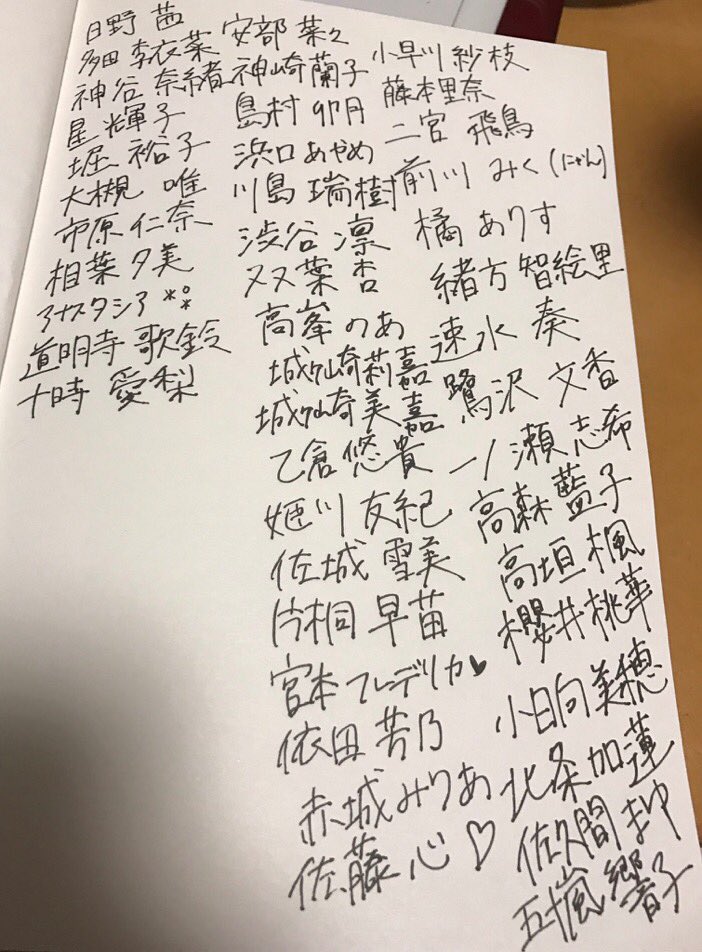 日野 茜
多田 李衣菜
神谷 奈緒
星 輝子
堀 裕子
大槻 唯
市原 仁奈
相葉 夕美
アナスタシア *°*
道明寺 歌鈴
十時 愛梨
安部 菜々
神崎 蘭子
島村 卯月
浜口 あやめ
川島 瑞樹
渋谷 凛
双葉 杏
高峯 のあ
城ヶ崎莉嘉
城ヶ崎美嘉
乙倉 悠貴
姫川 友紀
佐城 雪美
片桐 早苗
宮本 フレデリカ♥
依田 芳乃
赤城みりあ
佐藤 心♡
小早川 紗枝
藤本里奈
二宮 飛鳥
前川 みく(にゃん)
橘 ありす
緒方 智絵里
速水 奏
鷺沢 文香
一ノ瀬 志希
高森 藍子
高垣 楓
櫻井桃華
小日向 美穂
北条 加蓮
佐久間 まゆ
五十嵐 響子